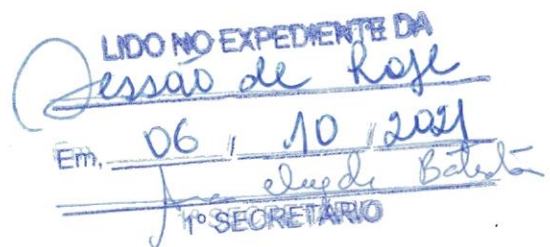 LIDO NO EXPEDIENTE DA
Sessão de hoje
Em, 06 / 10 / 2021
Batista
1º SECRETÁRIO